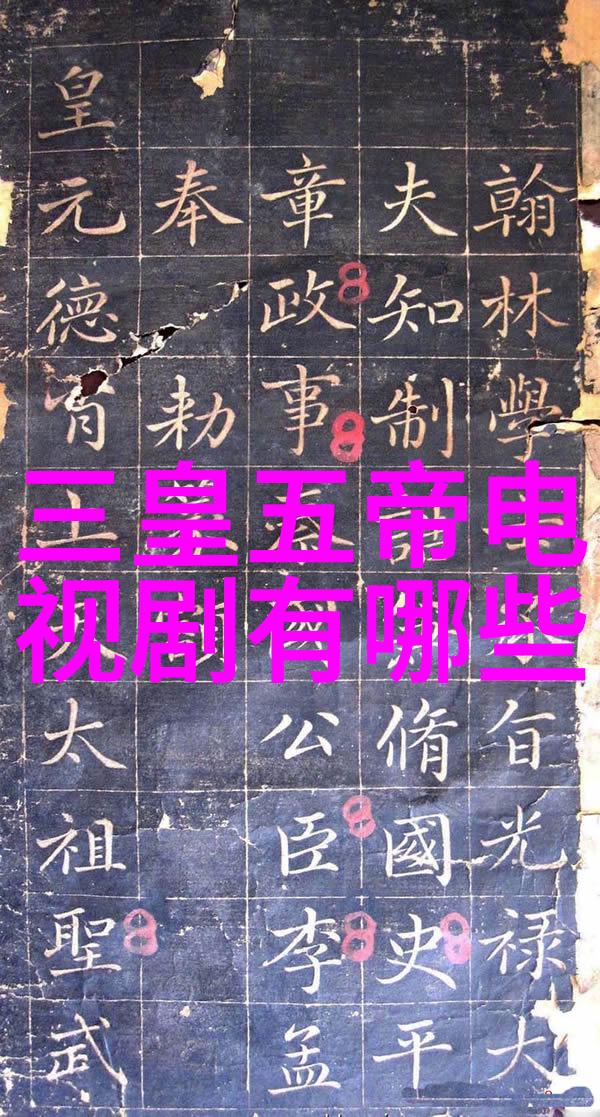 三皇五帝电
视剧有哪些
翰林學旨光禄大
夫知制誥脩國史平
章政事國公臣李孟
奉勅
皇元德土太祖聖武